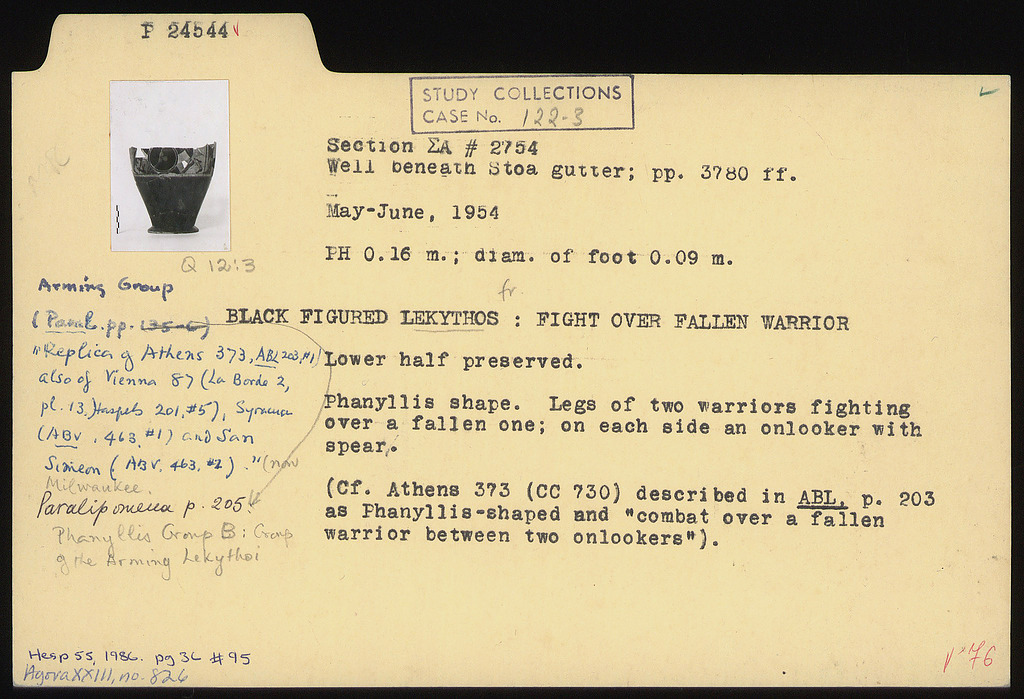 P 24544
STUDY COLLECTIONS
CASE No. 122-3
Section ΣΑ # 2754
Well beneath Stoa gutter; pp. 3780 ff.
May-June, 1954
PH 0.16 m.; diam. of foot 0.09 m.
Q 12:3
fr.
BLACK FIGURED LEKYTHOS : FIGHT OVER FALLEN WARRIOR
Lower half preserved.
Phanyllis shape. Legs of two warriors fighting
over a fallen one; on each side an onlooker with
spear.
(Cf. Athens 373 (CC 730) described in ABL, p. 203
as Phanyllis-shaped and "combat over a fallen
warrior between two onlookers").
Arming Group
(Paral. pp. 135-6)
"Replica of Athens 373, ABL 203, #1)
also of Vienna 87 (La Borde 2,
pl. 13, Haspels 201, #5), Syracuse
(ABV, 463, #1) and San
Simeon (ABV, 463, #2)." (now
Milwaukee.
Paralipomena p. 205.
Phanyllis Group B: Group
of the Arming Lekythoi
Hesp 55, 1986. pg 36 #95
Agora XXIII, no. 826
V '76